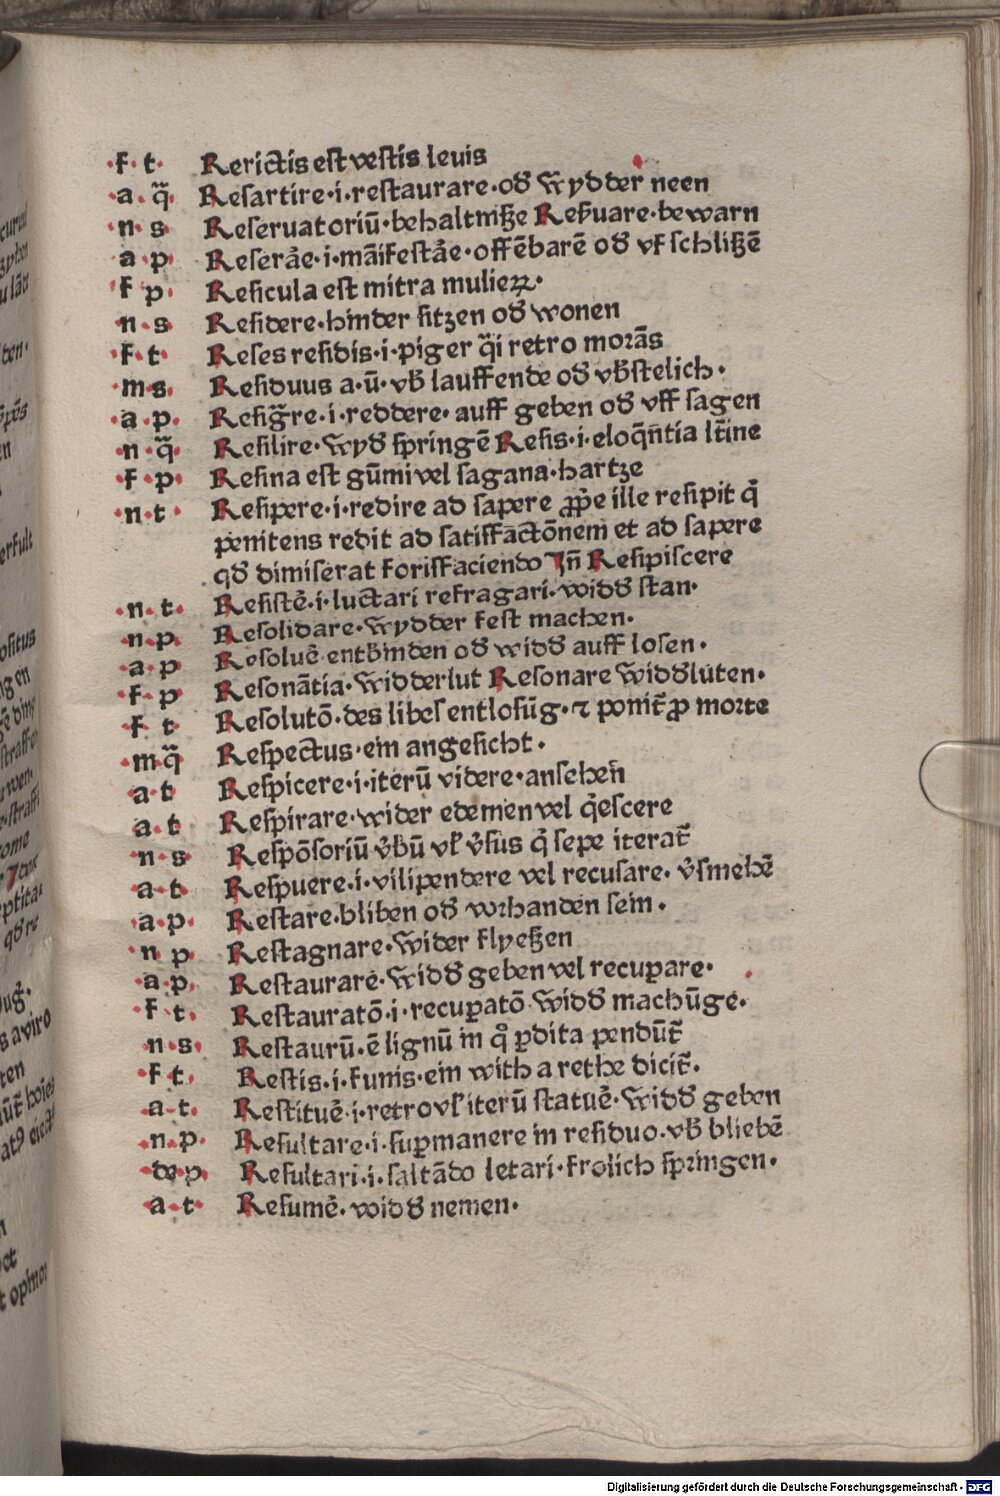 ·f· t· Rerictis est vestis levis
·a· q̈ Resartire·i·restaurare·od̄ wydder neen
·n· s· Reseruatoriū·behaltniße Reſ̄uare·bewarn
·a· p· Reserāe·i·māifestāe·offēbarē od̄ vf schlißē
·f p· Resicula est mitra mulieꝝ·
·n· s Residere·hinder sitzen od̄ wonen
·f· t· Reses residis·i·piger q̄i retro morās
·m s· Residuus a·ū·vb̄ lauffende od̄ vb̄stelich·
·a· p· Resiḡre·i·reddere·auff geben od̄ vff sagen
·n· q̈· Resilire·wyd̄ springē Resis·i·eloq̄ntia lt̄ine
·f· p· Resina est gūmi vel sagana·hartze
·n· t· Resipere·i·redire ad sapere ꝓp̄e ille resipit q̄
penitens redit ad satiffactōnem et ad sapere
qd̄ dimiserat forisfaciendo Jn̄ Resipiscere
·n· t· Resistē·i·luctari refragari·widd̄ stan·
·n· p· Resolidare·wydder fest machen·
·a· p Resoluē·entb̄inden od̄ widd̄ auff losen·
·f· p Resonātia·widderlut Resonare widd̄luten·
f· t Resolutō·des libes entlosūg·⁊ ponit̄ ꝓ morte
·m q̈ Respectus·ein angesicht·
·a· t Respicere·i·iterū videre·ansehen̄
a· t· Respirare·wider edemen vel q̄escere
·n· s Respōsoriū v̄bū vl̄ v̄sus q̄ sepe iterat̄
·a· t· Respuere·i·vilipendere vel recusare·v̄smehē
·a· p· Restare·bliben od̄ vorhanden sein·
n p· Restagnare·wider flyeßen
·a· p· Restaurare·widd̄ geben vel recuꝑare·
·f· t· Restauratō·i·recuꝑatō widd̄ machūge·
·n· s· Restaurū·ē lignū in q̊ ꝑdita pendūt̄
·f t· Restis·i·funis·ein with a rethe dicit̄·
·a· t· Restituē·i·retro vl̄ iterū statuē·widd̄ geben
·n· p· Resultare·i·suꝑmanere in residuo·vb̄ bliebē
·de p· Resultari·i·saltādo letari·frolich springen·
·a· t· Resumē·widd̄ nemen·
Digitalisierung gefördert durch die Deutsche Forschungsgemeinschaft - DFG